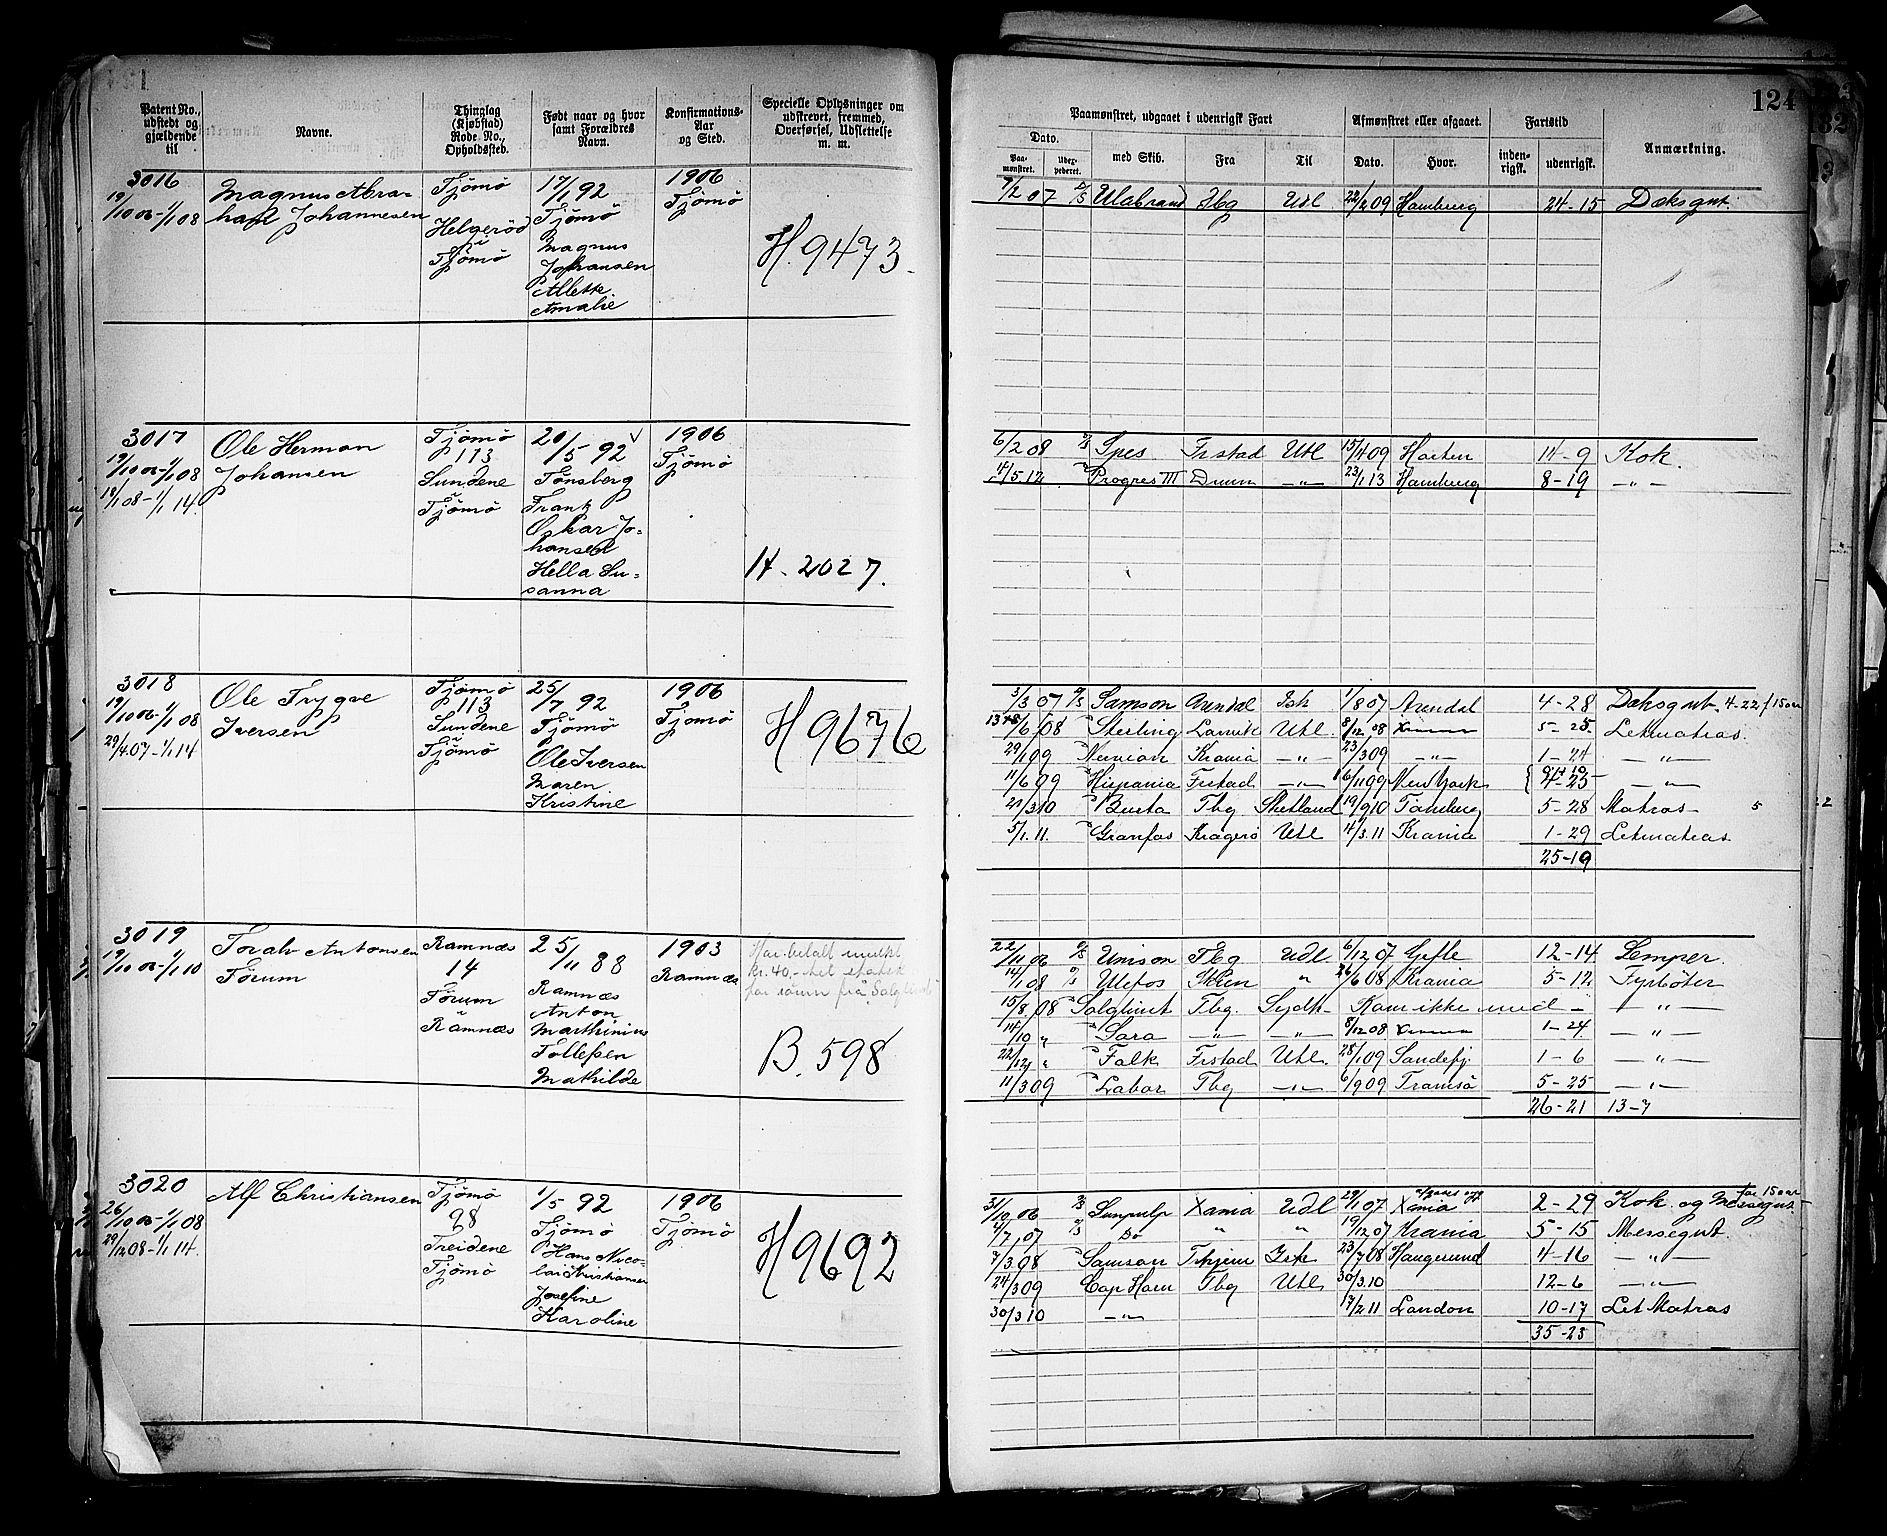 1
124
132
Patent No., udstedt og gjældende til
Navne.
Thinglag (Kjøbstad) Rode No., Opholdssted.
Født naar og hvor samt Forældres Navn.
Konfirmations-Aar og Sted.
Specielle Oplysninger om udstrevet, fremmed, Overførsel, Udslettelse m. m.
Paamønstret, udgaaet i udenrigsk Fart
Dato.
Paa-mønstret.
Uder-pederet.
med Skib.
Fra
Til
Afmønstret eller afgaaet.
Dato.
Hvor.
Fartstid
inden-rigsk.
udenrigsk.
Anmærkning.
3016
19/10 06 - 1/1 08
Magnus Abra-
ham Johannesen
Tjömö
Helgeröd
i
Tjömö
17/1 92
Tjömö
Magnus
Johansen
Alette
Amalie
1906
Tjömö
H. 9473.
7/2 07 D/S Ulabrand Hbg Udl 22/2 09 Hamburg 24-15 Dæksgut.
3017
19/10 06 - 1/1 08
18/1 08 - 1/1 14.
Ole Herman
Johansen
Tjömö
113
Sundene
i
Tjömö
20/5 92
Tönsberg
Frantz
Oskar Jo-
hansen
Hella Su-
sanna
1906
Tjömö
H. 2027.
6/2 08 D/S Spes Frstad Utl 15/4 09 Horten 14-9 Kok.
4/5 12 " Progres III Dram -"- 23/1 13 Hamburg 8-19 -"-
3018
19/10 06 - 1/1 08
29/4 07 - 1/1 14
Ole Trygve
Iversen
Tjömö
113
Sundene
i
Tjömö
25/7 92
Tjömö
Ole Iversen
Maren
Kristine
1906
Tjömö
H 9676
3/3 07 D/S Samson Arendal Isk 1/8 07 Arendal 4-28 Dæksgut 4-22 f 15 aar
/6 08 " Sterling Larvik Utl. 8/12 08 5-25 Letmatros.
29/1 09 " Krania -"- 23/3 09 -"- 1-24 -"-
11/6 09 " Hispania Frstad -"- 6/11 09 New York 4-25 -"-
21/3 10 " Busta Tbg Shetland 19/9 10 Tönsberg 5-28 Matros 5
5/1 11. " Granfos Kragerö Utl 4/3 11 Krania 1-29 Letmatros
25-19
3019
19/10 06 - 1/1 10
Toralv Antonsen
Förum
Ramnæs
14
Förum
i
Ramnæs
25/11 88
Ramnæs
Anton
Marthinius
Tollefsen
Mathilde
1903
Ramnæs
Har betalt mulkt
kr. 40,- til statsk
for römn fra Solglimt
B. 598
22/11 06 D/S Unison Tbg Udl 6/12 07 Gefle 12-14 Lemper.
14/1 08 D/S Ulefos Skien " 26/6 08 Krania 5-12 Fyrböter
15/8 08 " Solglimt Tbg. Sydh. Kom ikke med - -"-
14/10 " " Sara -"- -"- 8/12 08 1-24 -"-
22/12 " " Falk Frstad Utl. 28/1 09 Sandefj. 1-6 -"-
11/3 09 " Labor Tbg -"- 6/9 09 Tromsö 5-25 -"-
26-21 13-7
3020
26/10 06 - 1/1 08
29/12 08 - 1/1 14.
Alf Christiansen
Tjömö
98
Treidene
Tjömö
1/5 92
Tjömö
Hans Nico-
lai Kristiansen
Josefine
Karoline
1906
Tjömö
H 9692
31/10 06 D/S Sunpulp Xania Udl 29/1 07 Xania 2-29 Kok og Messegut for 15 aar
4/7 07 D/S Do " " 19/12 07 Krania 5-15 Messegut.
7/3 08 " Samson Trhjem Isk 23/7 08 Haugesund 4-16 -"-
24/3 09 Cap Horn Tbg Utl 30/3 10 12-6 -"-
30/3 10 -"- 17/2 11 London 10-17 Let Matros
35-23